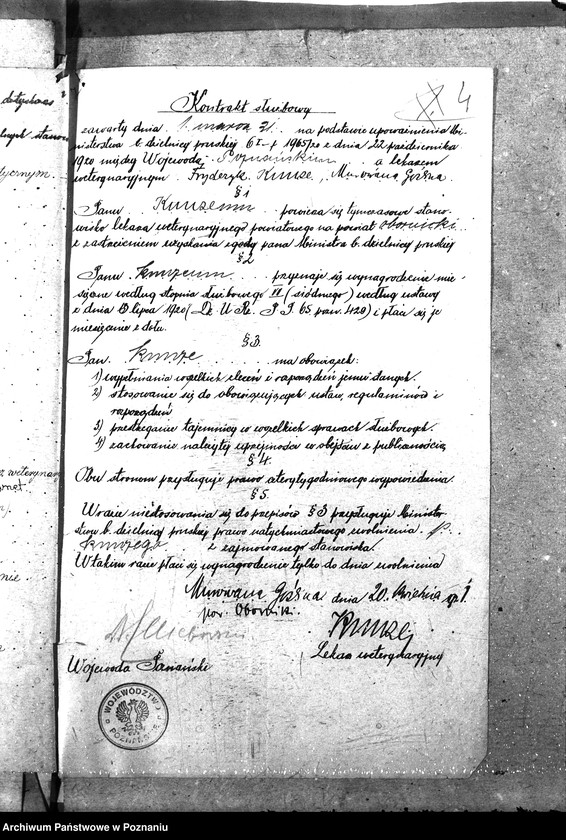 dotyczas
4
Kontrakt służbowy
zawarty dnia 1. marca 21. na podstawie upoważnienia Mi-
nisterstwa b. dzielnicy pruskiej 6 I. f 1965/20 z dnia 22. października
1920 między Wojewodą Poznańskim a lekarzem
weterynaryjnym Fryderyk Kunze, Murowana Goślina.
§ 1
Panu Kunzemu powierza się tymczasowe stano-
wisko lekarza weterynaryjnego powiatowego na powiat obornicki
z zastrzeżeniem uzyskania zgody pana Ministra b. dzielnicy pruskiej
§ 2
Panu Kunzemu przyznaje się wynagrodzenie mie-
sięczne według stopnia służbowego VII (siódmego) według ustawy
z dnia 13 lipca 1920 (Dz. U. Rz. P. P. 65 paw. 429) i płaci się je
miesięcznie z dołu.
§ 3.
Pan Kunze ma obowiązek:
1) wypełniania wszelkich zleceń i rozporządzeń jemu danych.
2) stosowanie się do obowiązujących ustaw, regulaminów i
rozporządzeń
3) przestrzeganie tajemnicy w wszelkich sprawach służbowych.
4) zachowanie należytej uprzejmości w obejściu z publicznością
§ 4.
Obu stronom przysługuje prawo czterytygodniowego wypowiedzenia.
§ 5.
W razie niestosowania się do przepisów § 3 przysługuje Minister
stwu b. dzielnicy pruskiej prawo natychmiastowego zwolnienia p.
Kunzego z zajmowanego stanowiska.
W takim razie płaci się wynagrodzenie tylko do dnia zwolnienia
Murowana Goślina dnia 20. Kwietnia 1921
pow. Obornik.
Kunze
Lekarz weterynaryjny
Wojewoda Poznański
WOJEWÓDZTWO
POZNAŃSKIE
Archiwum Państwowe w Poznaniu